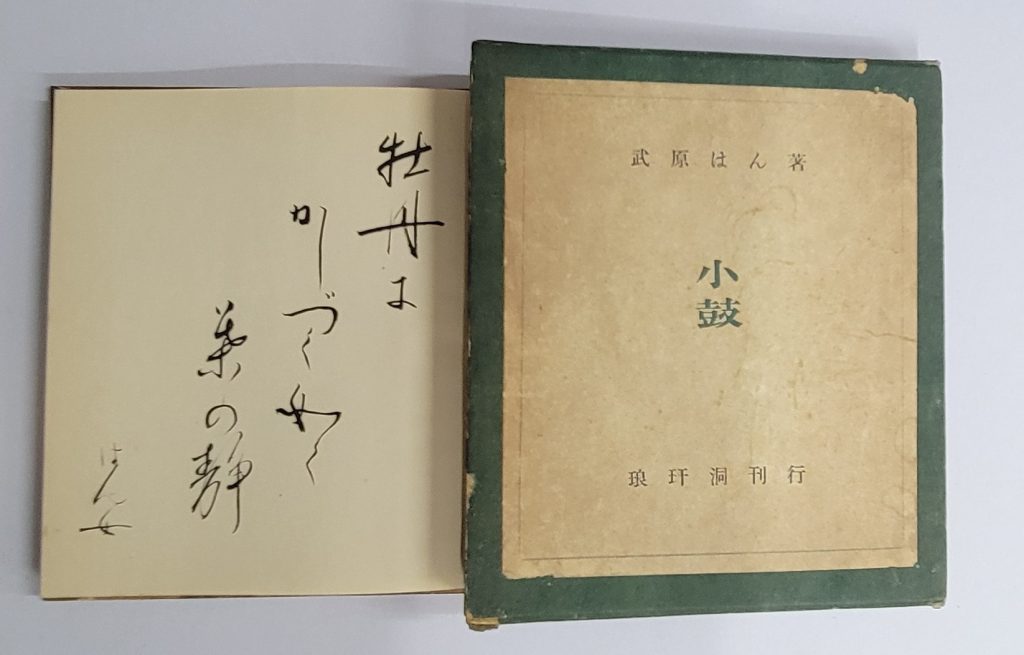 牡丹に
かしづく如く
葉の静
はん女
武原はん著
小鼓
琅玕洞刊行